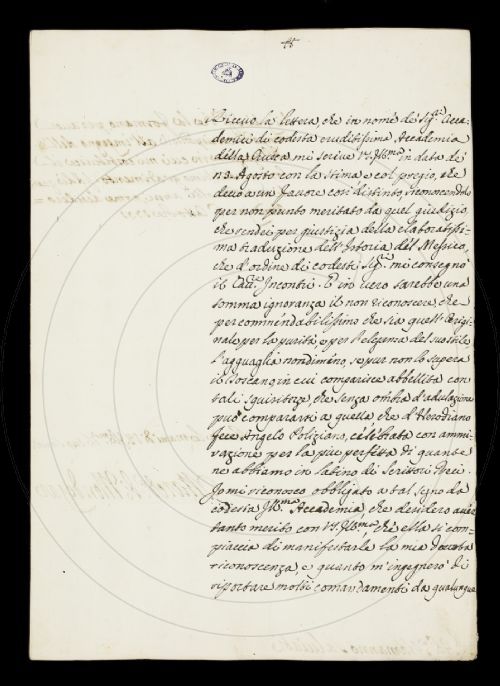 Ricevo la lettera, che in nome de' Sig.ri Acca-
demici di codesta eruditissima Accademia
della Crusca mi scrive V.S. Ill.ma in data de'
Agosto con la stima, e col pregio, che
devo a un favore così distinto, riconoscendolo
per non punto meritato da quel giudizio,
che rendei per giustizia della elaboratissi-
ma traduzione dell'Istoria del Messico,
che d'ordine di codesti Sig.ri mi consegnò
il Cav.re Incontri. E in vero sarebbe una
somma ignoranza il non riconoscere, che
per commendabilissimo che sia quell'Origi-
nale per la purità, e per l'eleganza del suo stile
l'agguaglia nondimeno, se pur non lo supera
il Toscano, in cui comparisce abbellita con
tale squisitezza, che senza ombra d'adulazione
può compararsi a quella che d'Herodiano
fece Angelo Poliziano, celebrata con ammi-
razione per la più perfetta di quante
ne abbiamo in latino di Scrittori Greci.
Io mi riconosco obbligato a tal segno da
codesta Ill.ma Accademia, che desidero
tanto merito con V.S. Ill.ma, che ella si com-
piaccia di manifestarle la mia
riconoscenza, e quanto m'ingegnerò di
riportare molti comandamenti da qualunque